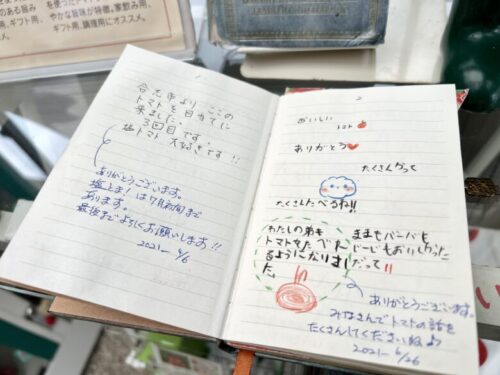 のある旨み
ギフト用、
やかな旨味が特徴。家飲み用、
ギフト用、調理用にオススメ。
合志市より ここの
トマトを目当てに
来ました。
3回目です
塩トマト 大好きです!!
ありがとうございます。
塩とま! は7月初旬まで
あります。
最後までよろしくお願いします!!
2021- 6/6
2
おいしい
トマト
ありがとう
たくさんかって
たくさんたべるね!!
わたしの弟も
トマトをたべれ
るようになりまし
た。
ままもバーバも
じーじもおいしかった
だって!!
ありがとうございます。
みなさんでトマトの話を
たくさんしてくださいね♪
2021- 6/26